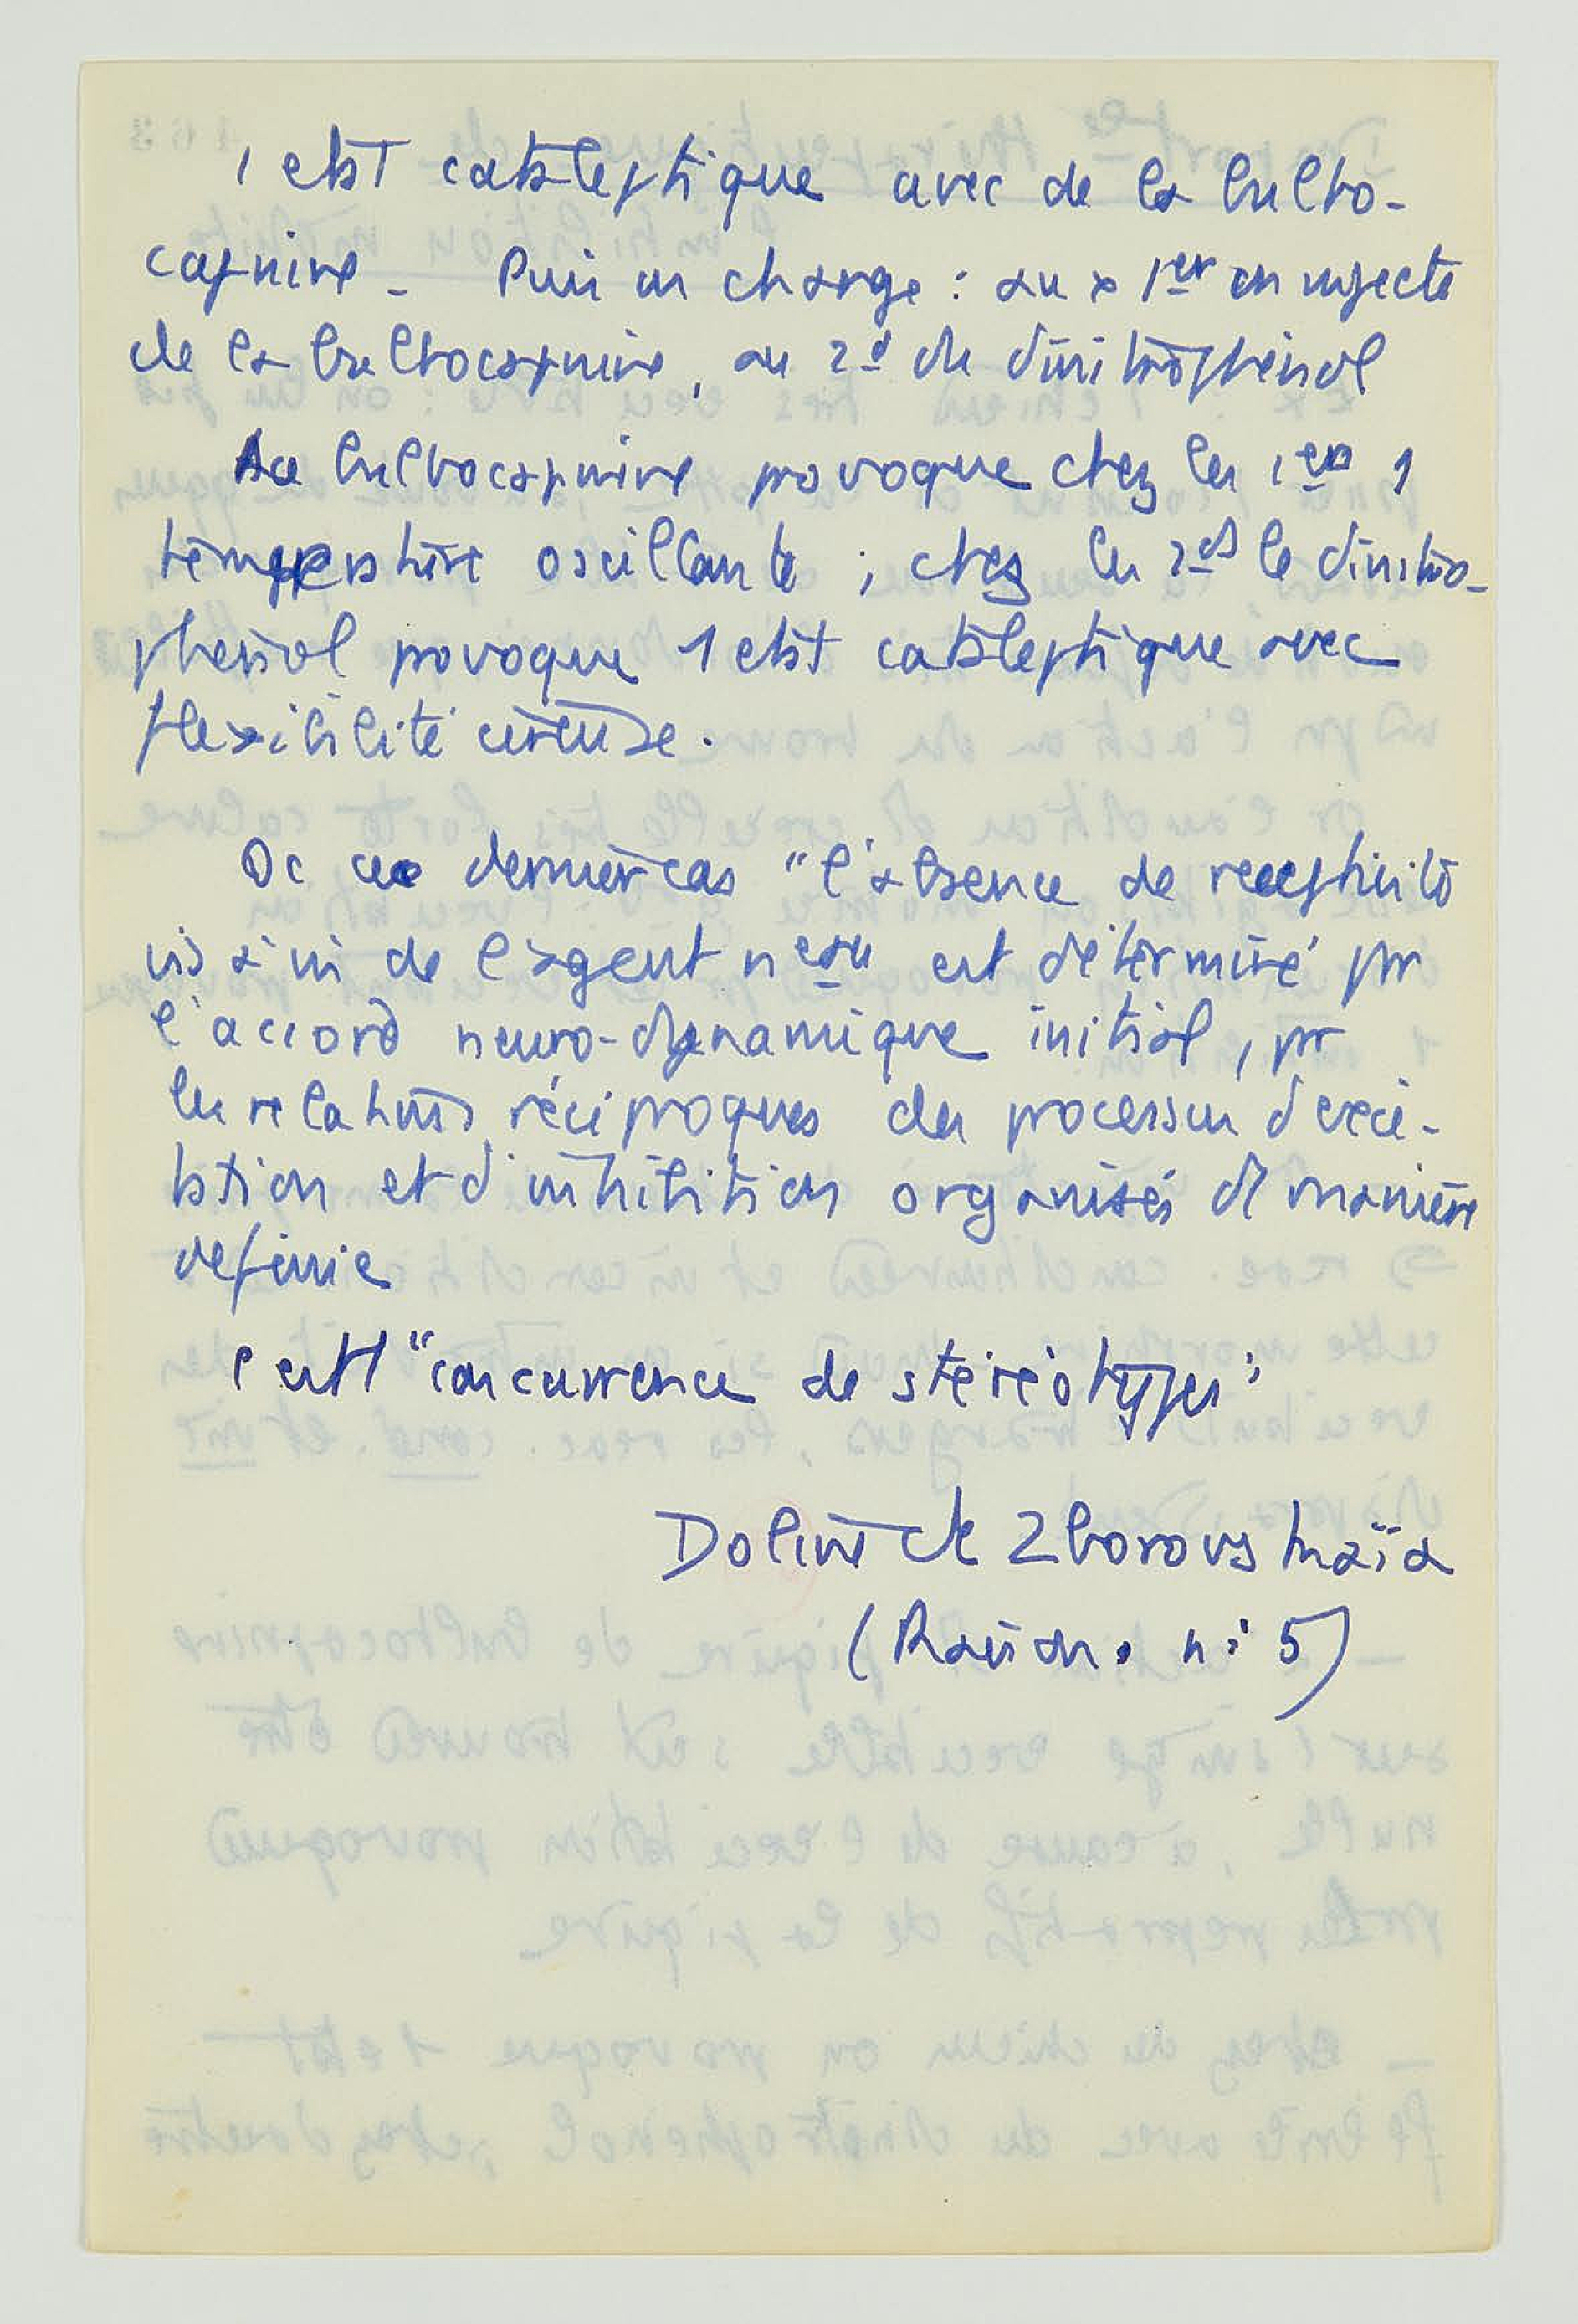 1 etat cataleptique avec de la bulbo-
capnine - Puis on change : aux 1er on injecte
de la bulbocapnine, au 2d du dinitrophénol
La bulbocapnine provoque chez les 1ers 1
température oscillante ; chez les 2ds le dinitro-
phénol provoque 1 etat cataleptique avec
flexibilité cireuse.
Dc ce dernier cas "l'absence de receptivité
vis à vis de l'agent neau est déterminé pr
l'accord neuro-dynamique initial, pr
les relations réciproques des processus d'exci-
tation et d'inhibition organisés d manière
definie
c'est l "concurrence de stéréotypes"
Doline de Zborovskaïa
(Raison. n° 5)